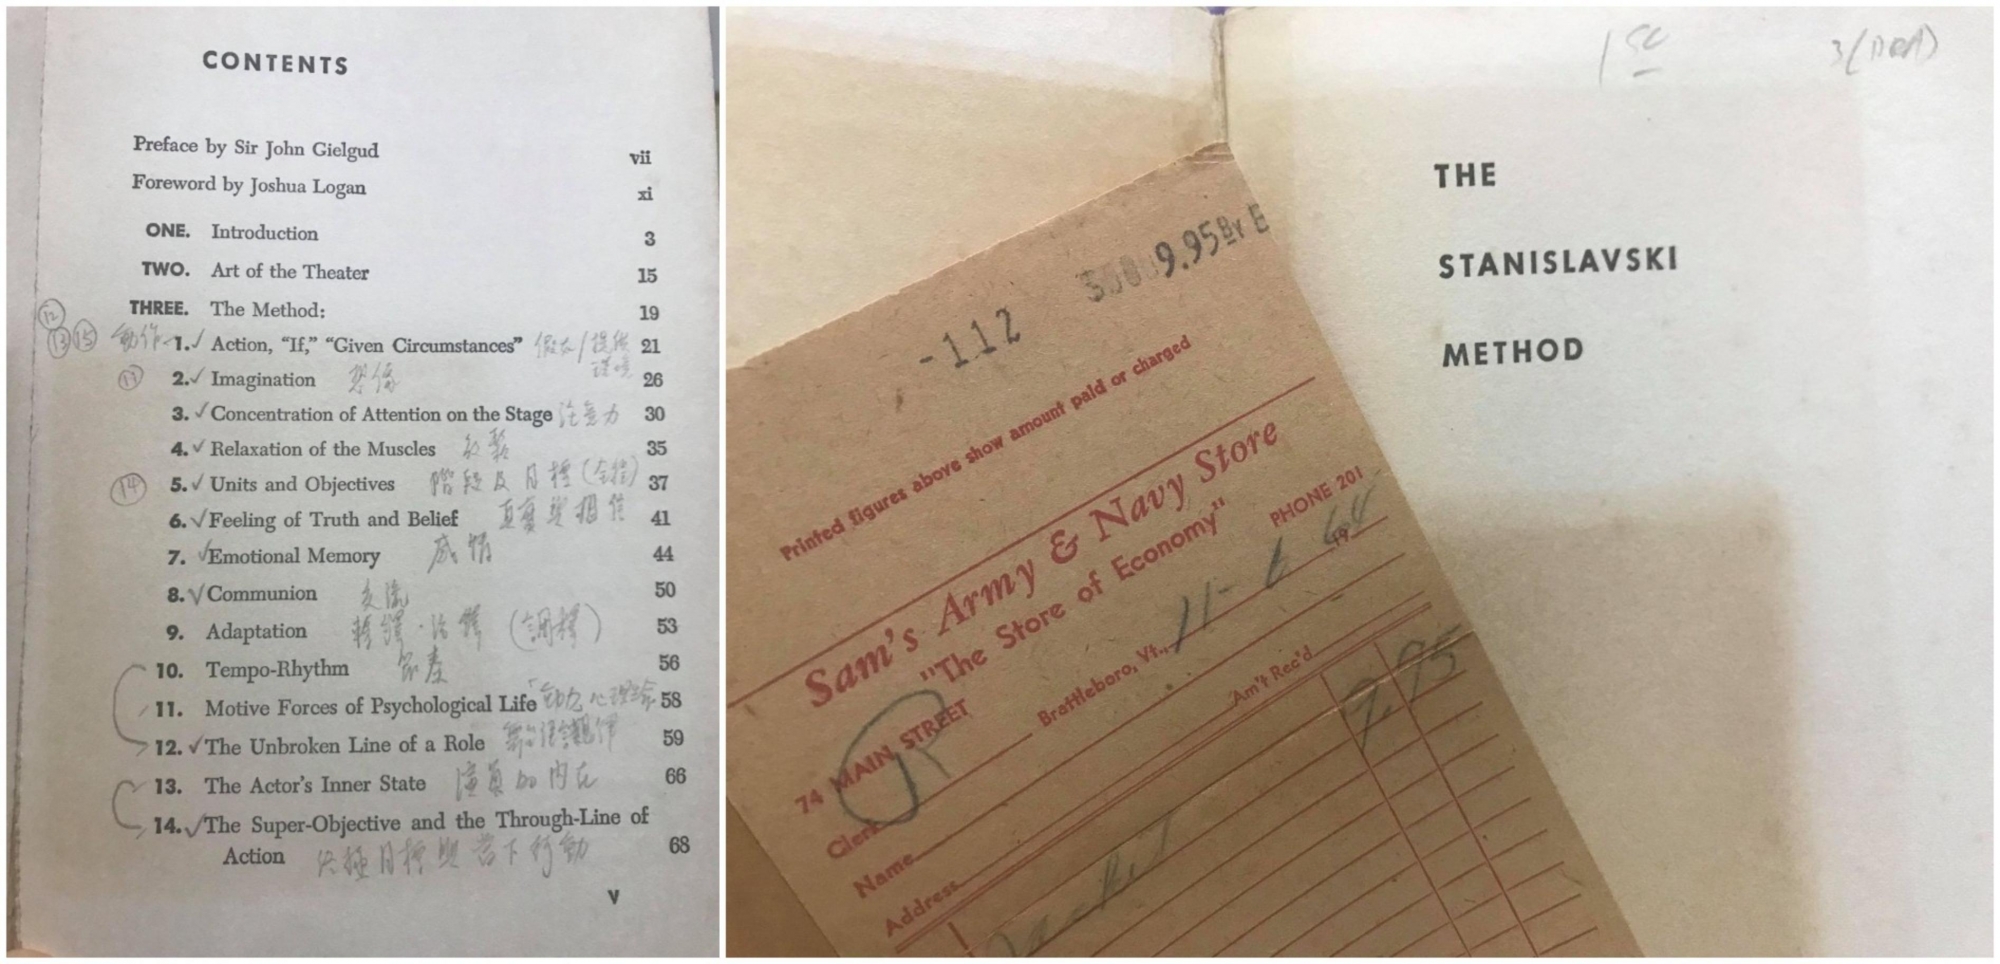 CONTENTS
Preface by Sir John Gielgud vii
Foreword by Joshua Logan xi
ONE. Introduction 3
TWO. Art of the Theater 15
THREE. The Method: 19
⑫
⑬ ⑮ 動作 1.✓ Action, “If,” “Given Circumstances” 假如/提供 21
環境
2.✓ Imagination 想像 26
3.✓ Concentration of Attention on the Stage 注意力 30
4.✓ Relaxation of the Muscles 放鬆 35
⑭ 5.✓ Units and Objectives 階段及目標 37
6.✓ Feeling of Truth and Belief 真實與相信 41
7.✓ Emotional Memory 感情 44
8.✓ Communion 交流 50
9. Adaptation 53
10. Tempo-Rhythm 節奏 56
11. Motive Forces of Psychological Life 58
12.✓ The Unbroken Line of a Role 59
13. The Actor's Inner State 演員的內在 66
14.✓ The Super-Objective and the Through-Line of
Action 終極目標與當下行動 68
v
3
THE
STANISLAVSKI
METHOD
-112 9.95 BY E
Printed figures above show amount paid or charged
Sam's Army & Navy Store
"The Store of Economy"
74 MAIN STREET PHONE 201
Brattleboro, Vt., 11-6 1964
Clerk
Name Am't Rec'd
Address
1 Jacket 9.95